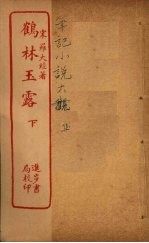 宋羅大經著
鶴林玉露
下
進步書
局校印
筆記小說大觀